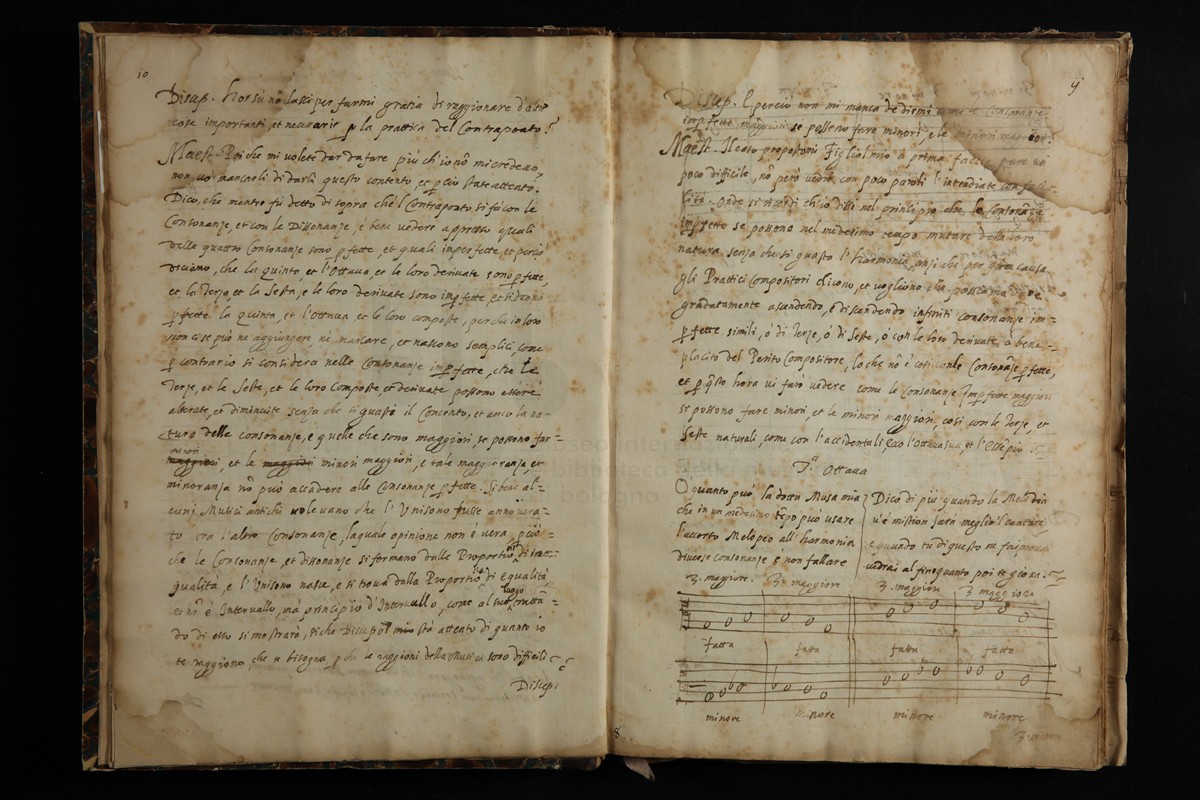 10
Discep. Horsù nõ lasci per farmi gratia di raggionare d'altre
cose importanti, et necessarie p̱ la prattica del Contraponto?
Maest. Poi che mi volete dar da fare più ch'io nõ mi credeao,
non vo mancarli di darli questo contento, et p̱ ciò state attento.
Dico, che mentre fù detto di sopra che'l Contraponto si fà con le
Consonanze, et con le Dissonanze, è bene vedere appresso quali
delle quattro Consonanze sono p̱fette, et quali imperfette, et perciò
diciamo, che la quinta, et l'Ottava, et le loro derivate sono p̱fette,
et la Terza, et la Sesta, e le loro derivate sono imp̱fette, et si dicono
p̱fette la quinta, et l'Ottava, et le loro composte, perche in loro
non ci se può ne aggiungere, ne mancare, et nascono semplici, come
p̱ contrario si considera nelle Consonanze imp̱fette, che le
Terze, et le Seste, et le loro composte, et derivate possono essere
alterate, et diminuite senza che si guasti il Concento, et anco la na=
tura delle consonanze, e quelle che sono maggiori se possono far=
minori
et le minori maggiori, e tale maggioranza, et
minoranza nõ può accadere alle Consonanze p̱fette. Si bene al=
cuni Musici antichi volevano che l'Unisono fusse annovera=
to tra l'altre Consonanze, laquale opinione non è vera, p̱ciò=
che le Consonanze, et dissonanze si formano dalle Proportioni di ine=
qualità, e l'Unisono nasce, e si trova dalla Proportione di equalità,
et nõ è Intervallo, ma principio d'Intervallo, come al suo luogo trattã=
do di esso si mostrarà, siche Discepol mio stà attento di quanto io
te raggiono, che te bisogna, p̱che le raggioni della Musica sono difficili
Discep:
8
ij
Discep. E perciò non mi manca de dirmi come le Consonanze
imp̱fette maggiori se posseno fare minori, e le minori maggiori?
Maest. Il caso propostomi Figliol mio à prima faccie pare un
poco difficile, no però vedrò con poco paroli l'intendiate con facili=
tà. Onde si ricordi ch'io dissi nel principio che le Consonãze
Imp̱fette se possono nel medesimo tempo mutare della loro
natura senza che si guasta l'Harmonia, anzi che per q̃sta causa
gli Prattici Compositori dicono, et vogliono che possiamo
gradatamente ascendendo, è discendendo infiniti consonanze im=
p̱fette simili, ò di Terze, ò di Seste, ò con le loro derivate, a bene=
placito del Perito Compositore, lo che nõ è così con le Consonãze p̱fette,
et p̱ q̃sto hora vi farò vedere come le Consonanze Imp̱fette maggiori
si possono fare minori, et le minori maggiori, così con le Terze, et
Seste naturali, come con l'accidentali, ecco l'Ottava sua, et l'Essẽpii.
P.ª Ottava
O quanto può la dotta Musa mia
che in un medesimo tẽpo può usare
l'accorto Melopeo all'harmonia
diverse consonanze è non fallare
Dico di più quando la Melodia
v'è mistion sarà meglio'l cantare
e quando tu di questo ne fai prova
vedrai al fine quanto poi te giova.
3. maggiore. 3 maggiore 3. maggiore 3 maggiore
fatta fatta fatta fatta
minore minore minore minore
3. minore